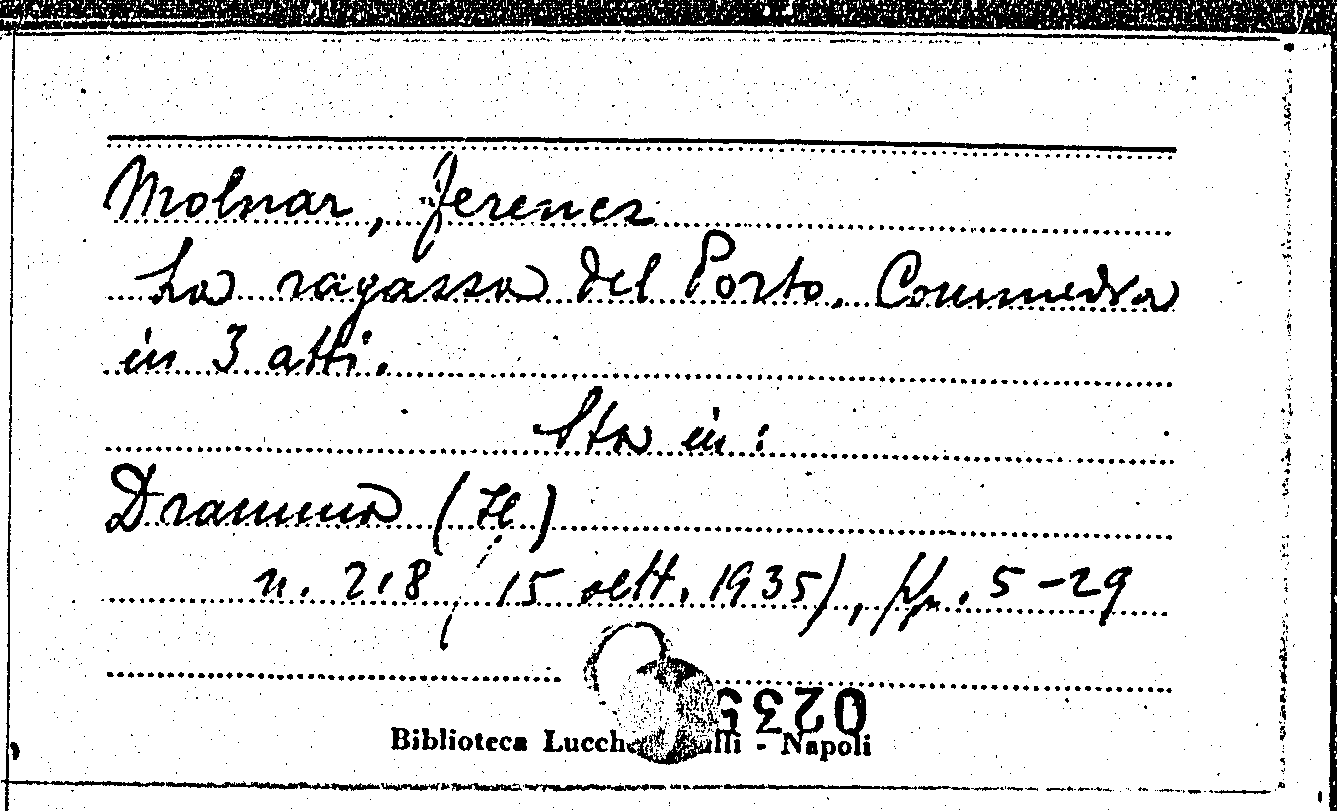 Molnar, Ferencz
La ragazza del Porto. Commedia
in 3 atti.
Sta in:
Dramma (Il)
n. 218 (15 sett. 1935), pp. 5-29
0235
Biblioteca - Napoli